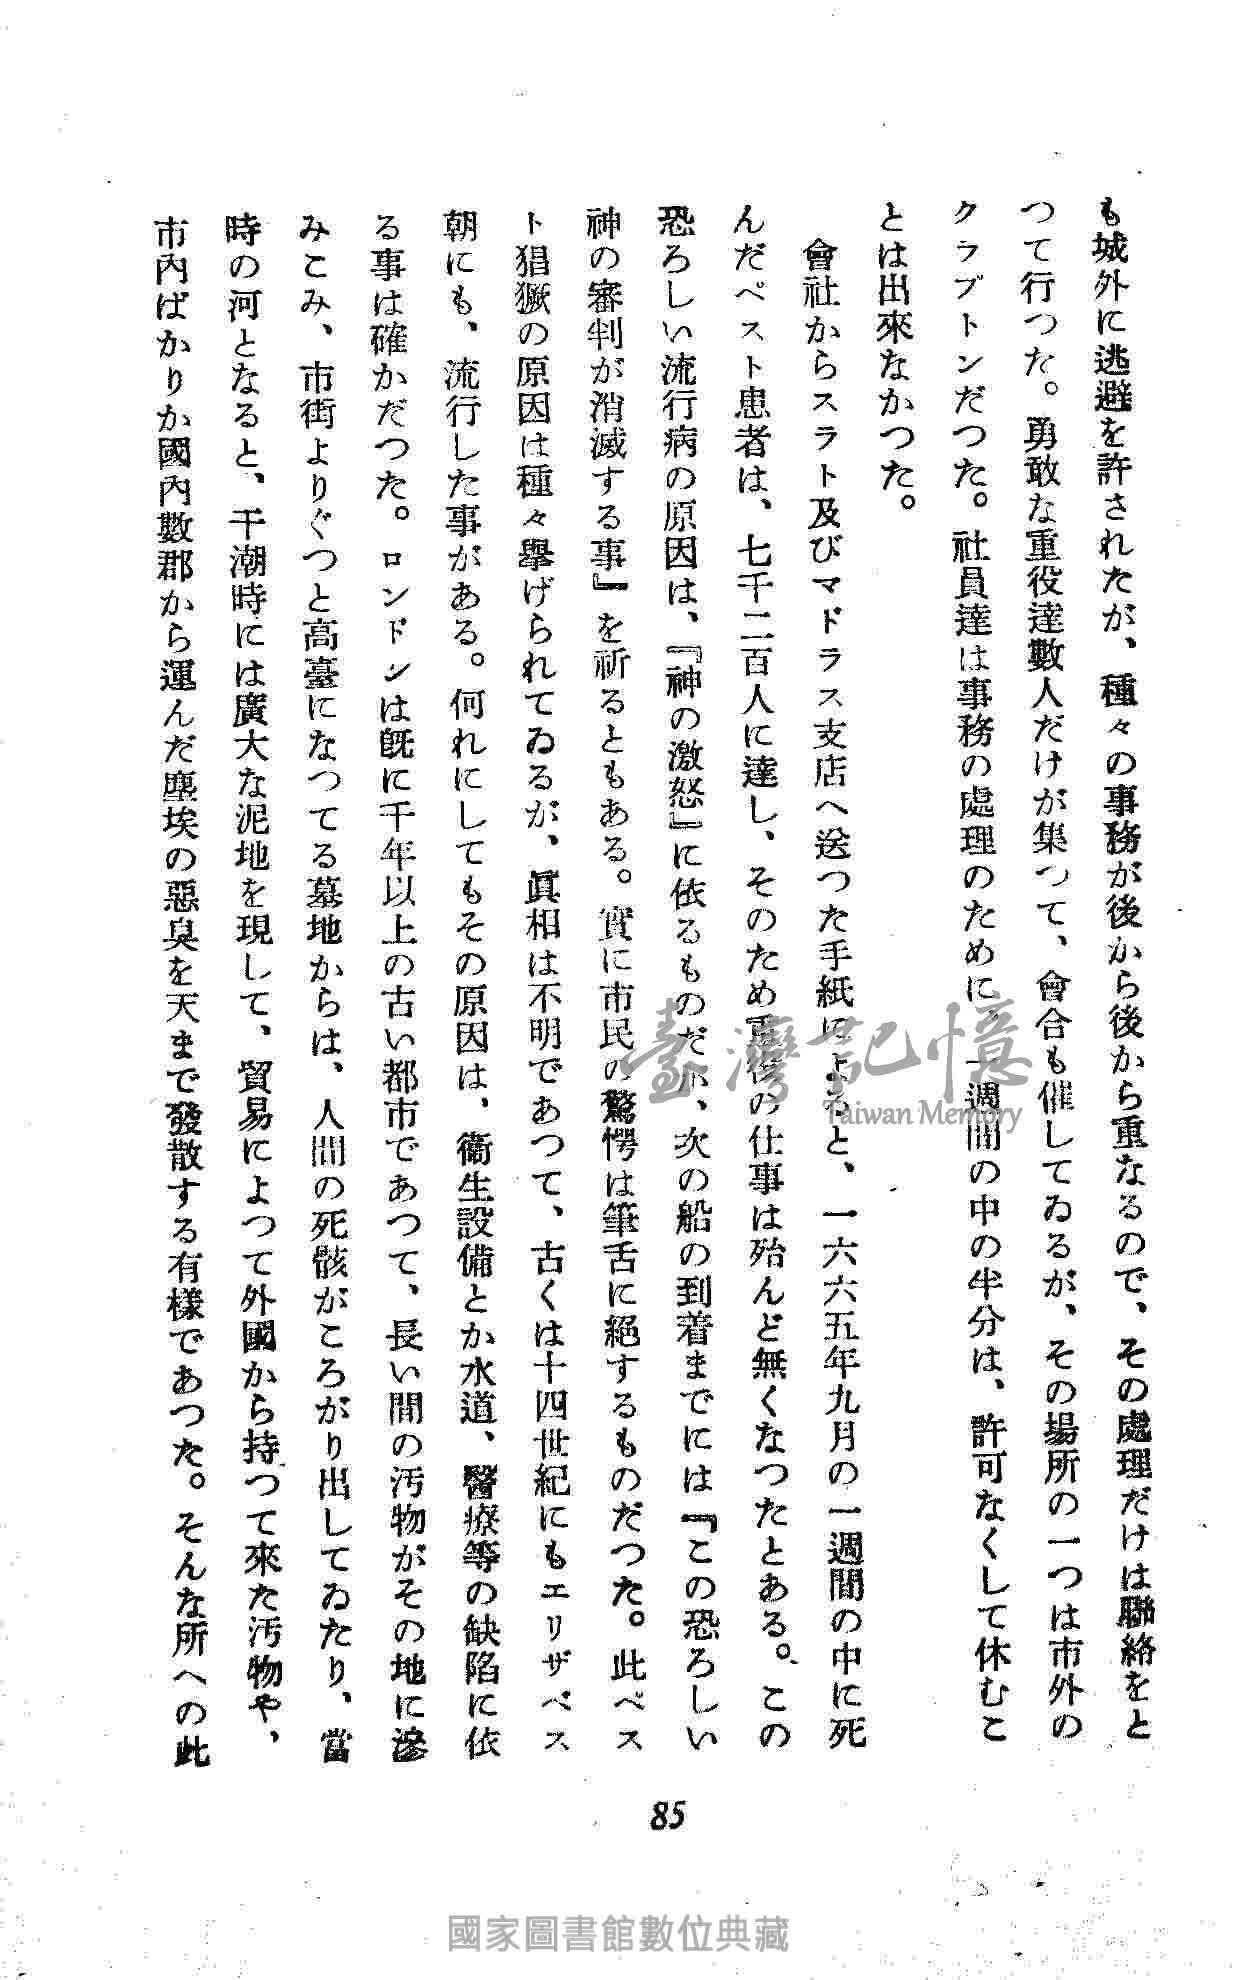 も城外に逃避を許されたが、種々の事務が後から後から重なるので、その處理だけは聯絡をと
つて行つた。勇敢な重役達數人だけが集つて、會合も催してゐるが、その場所の一つは市外の
クラプトンだつた。社員達は事務の處理のために、一週間の中の半分は、許可なくして休むこ
とは出來なかつた。
會社からスラト及びマドラス支店へ送つた手紙によると、一六六五年九月の一週間の中に死
んだペスト患者は、七千二百人に達し、そのため重役の仕事は殆んど無くなつたとある。この
恐ろしい流行病の原因は、『神の激怒』に依るものだが、次の船の到着までには『この恐ろしい
神の審判が消滅する事』を祈るともある。實に市民の驚愕は筆舌に絕するものだつた。此ペス
ト猖獗の原因は種々擧げられてゐるが、眞相は不明であつて、古くは十四世紀にもエリザベス
朝にも、流行した事がある。何れにしてもその原因は、衞生設備とか水道、醫療等の缺陷に依
る事は確かだつた。ロンドンは旣に千年以上の古い都市であつて、長い間の汚物がその地に滲
みこみ、市街よりぐつと高臺になつてる墓地からは、人間の死骸がころがり出してゐたり、當
時の河となると、干潮時には廣大な泥地を現して、貿易によつて外國から持つて來た汚物や、
市內ばかりか國內數郡から運んだ塵埃の惡臭を天まで發散する有樣であつた。そんな所への此
85
臺灣記憶
Taiwan Memory
國家圖書館數位典藏